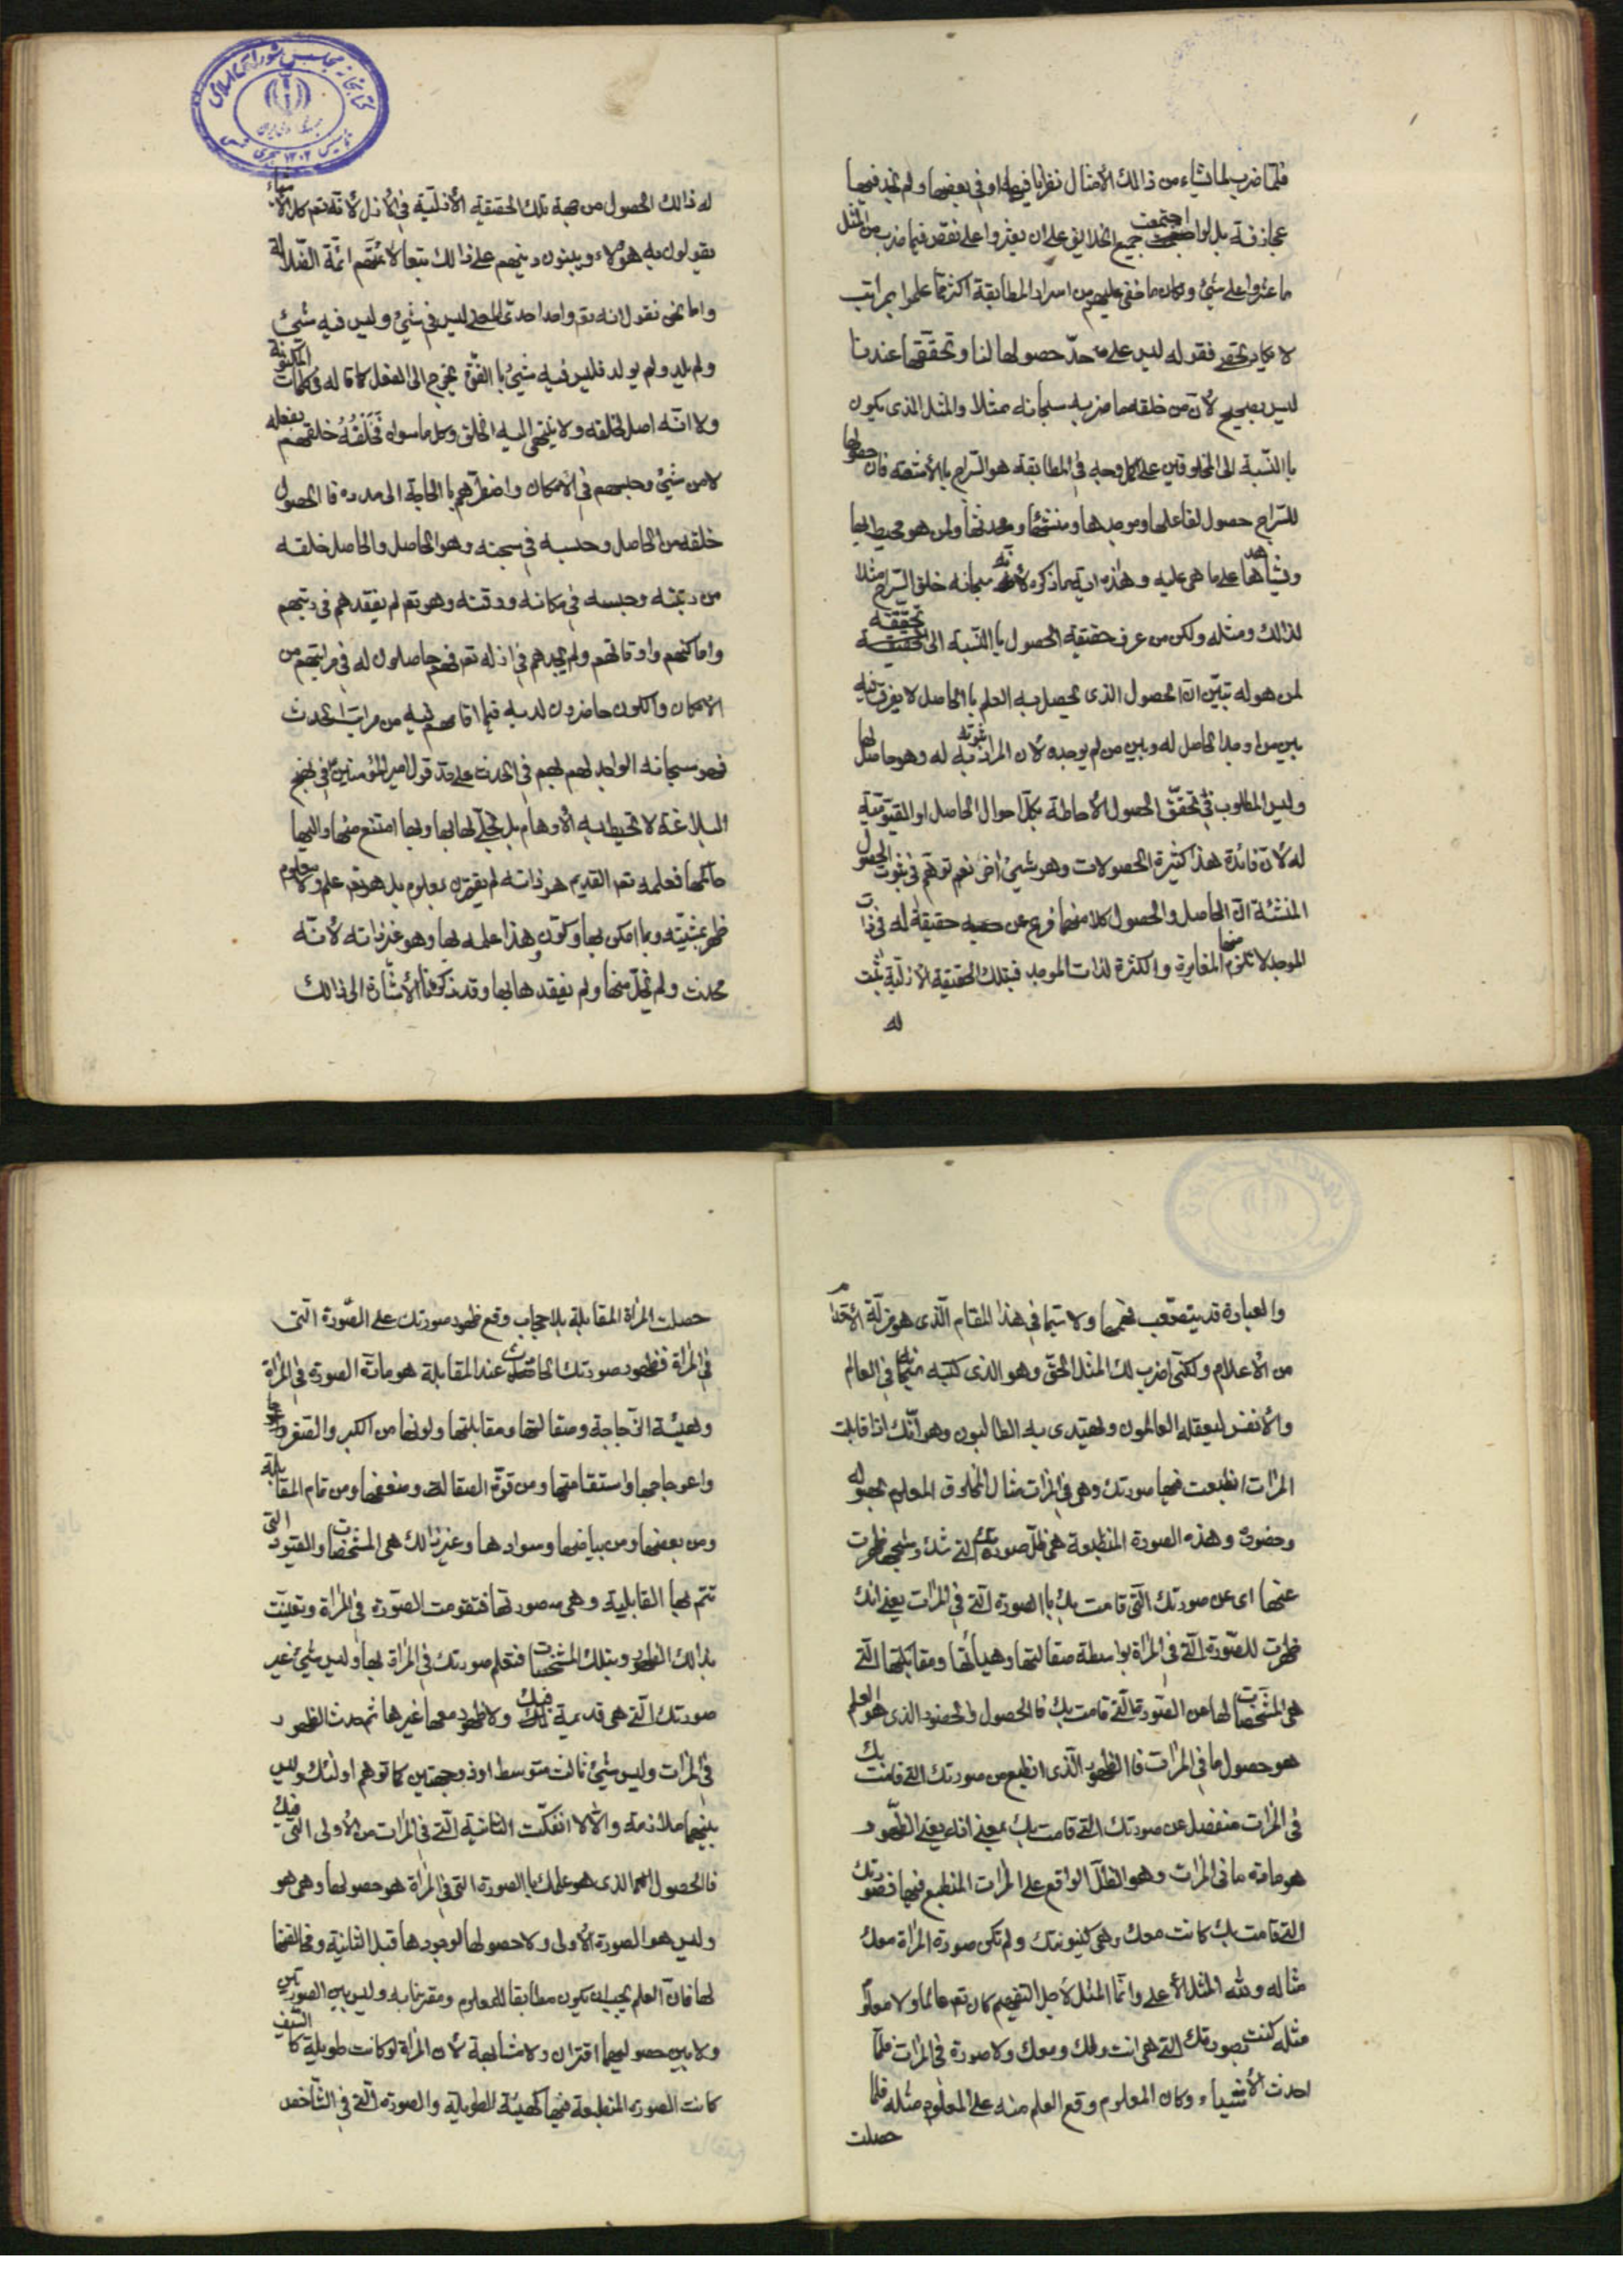 فلمّا ضرب لما شاء من ذالك الأمثال نظرنا فيها او في بعضها ولم نجد فيها
مجازفة بل لو اجتمعت جميع الخلايق على ان يعثروا على نقص فيما ضرب من المثل
ما عثروا على شئ ولكان ما خفى عليهم من اسرار المطابقة اكثر مما علموا بمراتب
لا يكاد يحصى فقوله ليس على حدّ حصولها لنا وتحققها عندنا
ليس بصحيح لأن من خلقه ما ضربه سبحانه مثلا والمثل الذى يكون
با النّسبة الى المخلوقين على كل وجه في المطابقة هو السّراج با الأشعته فان حصولها
للسّراج حصول لفاعلها وموجدها ومنشئها ومحدثها ولمن هو محيط بها
ويشاهدها على ما هى عليه وهذه اية ما ذكره لأنّه سبحانه خلق السّراج مثلا
لذالك ومثله ولكن من عرف حقيقة الحصول با النّسبة الى تحقّقه
لمن هو له تبيّن ان الحصول الذى يحصل به العلم با الحاصل لا يفرق فيه
بين من اوجد الحاصل له وبين من لم يوجده لأن المراد به ثبوته له وهو حاصل لها
وليس المطلوب في تحقّق الحصول الأحاطة بكل احوال الحاصل او القيّوميّة
له لأن فائدة هذا كثيرة الحصولات وهو شئ اخر نعم توهّم في ثبوت الحصول
المنشئة ان الحاصل والحصول كلا منهما فرع عن حقيقة له في ذات
الموجد لا تلزم منها المغايرة والكثرة لذات الموجد فبتلك الحقيقة الأزليّة ثبت
له
له ذالك الحصول من جهة تلك الحقيقة الأزليّة في الأزل لأنّه تعم كل الأشياء
يقولون به هؤلاء ويبنون دينهم على ذالك تبعا لأئمّتهم ائمّة الضّلالة
واما نحن نقول انه تعم واحد احدىّ المعنى ليس في شئ وليس فيه شئ
ولم يلد ولم يولد فليس فيه شئ با القوّة يخرج الى الفعل كما قاله في كلمات المكنونة
ولا انّه اصل لخلقه ولا ينتهى اليه الخلق وكل ما سواه فخلقه خلقهم بفعله
لا من شئ وحبسهم في الأمكان واضطرّهم با الحاجة الى مدده فا الحصول
خلقه من الحاصل وحبسه في سجنه وهو الحاصل والحاصل خلقه
من رتبته وحبسه في مكانه ووقته وهو تعم لم يفقدهم في رتبتهم
واماكنهم واوقاتهم ولم يجدهم في ازله تعم فهم حاصلون له في مراتبهم من
الأمكان والكون حاضرون لديه فيما اقامهم فيه من مراتب الحدث
فهو سبحانه الواجد لهم بهم في الحدث على حدّ قول امير المؤمنين ع في نهج
البلاغة لا تحيط به الأوهام بل تجلّى لها بها وبها امتنع منها واليها
حاكمها فعلمه تعم القديم هو ذاته لم يقترن بمعلوم بل هو تعم علم ولا معلوم
ظهر بمشيّته وبما امكن بها وكوّن وهذا علمه بها وهو غير ذاته لأنّه
محدث ولم يخل منها ولم يفقدها بها وقد ذكرنا الأشارة الى ذالك
والعبارة قد يتصعّب فهمها ولا سيّما في هذا المقام الّذى هو مزلّة الأقدام
من الأعلام ولكنّى اضرب لك المثل الحقّ وهو الذى كتبه تعم في العالم
والأنفس ليعقله العالمون ويهتدى به الطالبون وهو انّك اذا قابلت
المرات انطبعت فيها صورتك وهى في المرات مثال المخلوق المعلوم بحصوله
وحضوره وهذه الصورة المنطبعة هى ظلّ صورتك التى بك وشبحها ظهرت
عنها اى عن صورتك الّتى قامت بك با الصورة التى في المرات يعنى انك
ظهرت للصّورة التى في المراة بواسطة صقالتها وهيأتها ومقابلتها الّتى
هى المشخّصات لها من الصّورة الّتى قامت بك فا الحصول والحضور الذى هو العلم
هو حصول ما في المرات فا الظهور الّذى انطبع من صورتك التى قامت بك
في المرات منفصل عن صورتك الّتى قامت بك بمعنى انه يعنى الظّهور
هو مادة ما في المرات وهو الظّلّ الواقع على المرات المنطبع فيها فصورتك
التى قامت بك كانت معك وهى كينونتك ولم تكن صورة المراة معك
مثاله ولله المثل الأعلى وانّما المثل لأجل التفهيم كان تعم عالما ولا معلوم
مثله كنت بصورتك التى هى انت ولك ومعك ولا صورة في المرات فلمّا
احدث الأشياء وكان المعلوم وقع العلم منه على المعلوم مثله فلما
حصلت
حصلت المراة المقابلة بلا حجاب وقع ظهور صورتك على الصّورة الّتى
في المراة فظهور صورتك الحاصلة عند المقابلة هو مادّة الصورة في المراة
وهيئة الزّجاجة وصقالتها ومقابلتها ولونها من الكبر والصّغر
واعوجاجها واستقامتها ومن قوّة الصقالة وضعفها ومن تمام المقابلة
ومن بعضها ومن بياضها وسوادها وغير ذالك هى المشخّصات والقيود التى
تتم بها القابلية وهى صورتها فتقومت الصّورة في المراة وتعيّنت
بذالك الظهور وبتلك المشخّصات فتعلم صورتك في المراة بها وليس شئ غير
صورتك الّتى هى قديمة فيك ولا ظهور معها غيرها ثم حدث الظهور
في المرات وليس شئ ثالث متوسط او ذو جهتين كما توهّم اولئك وليس
بينهما ملازمة والّا لما انفكّت الثانية الّتى في المرات من الأولى التى فيك
فا الحصول الذى هو علمك با الصورة التى في المراة هو حصولها وهى هو
وليس هو الصورة الأولى ولا حصولها لوجودها قبل الثانية ومخالفتها
لها فان العلم يجب ان يكون مطابقا للمعلوم ومقترنا به وليس بين الصورتين
ولا بين حصوليهما اقتران ولا مشابهة لأن المراة لو كانت طويلة كا السّيف
كانت الصورة المنطبعة فيها كهيئة الطويلة والصورة الّتى في الشّاخص